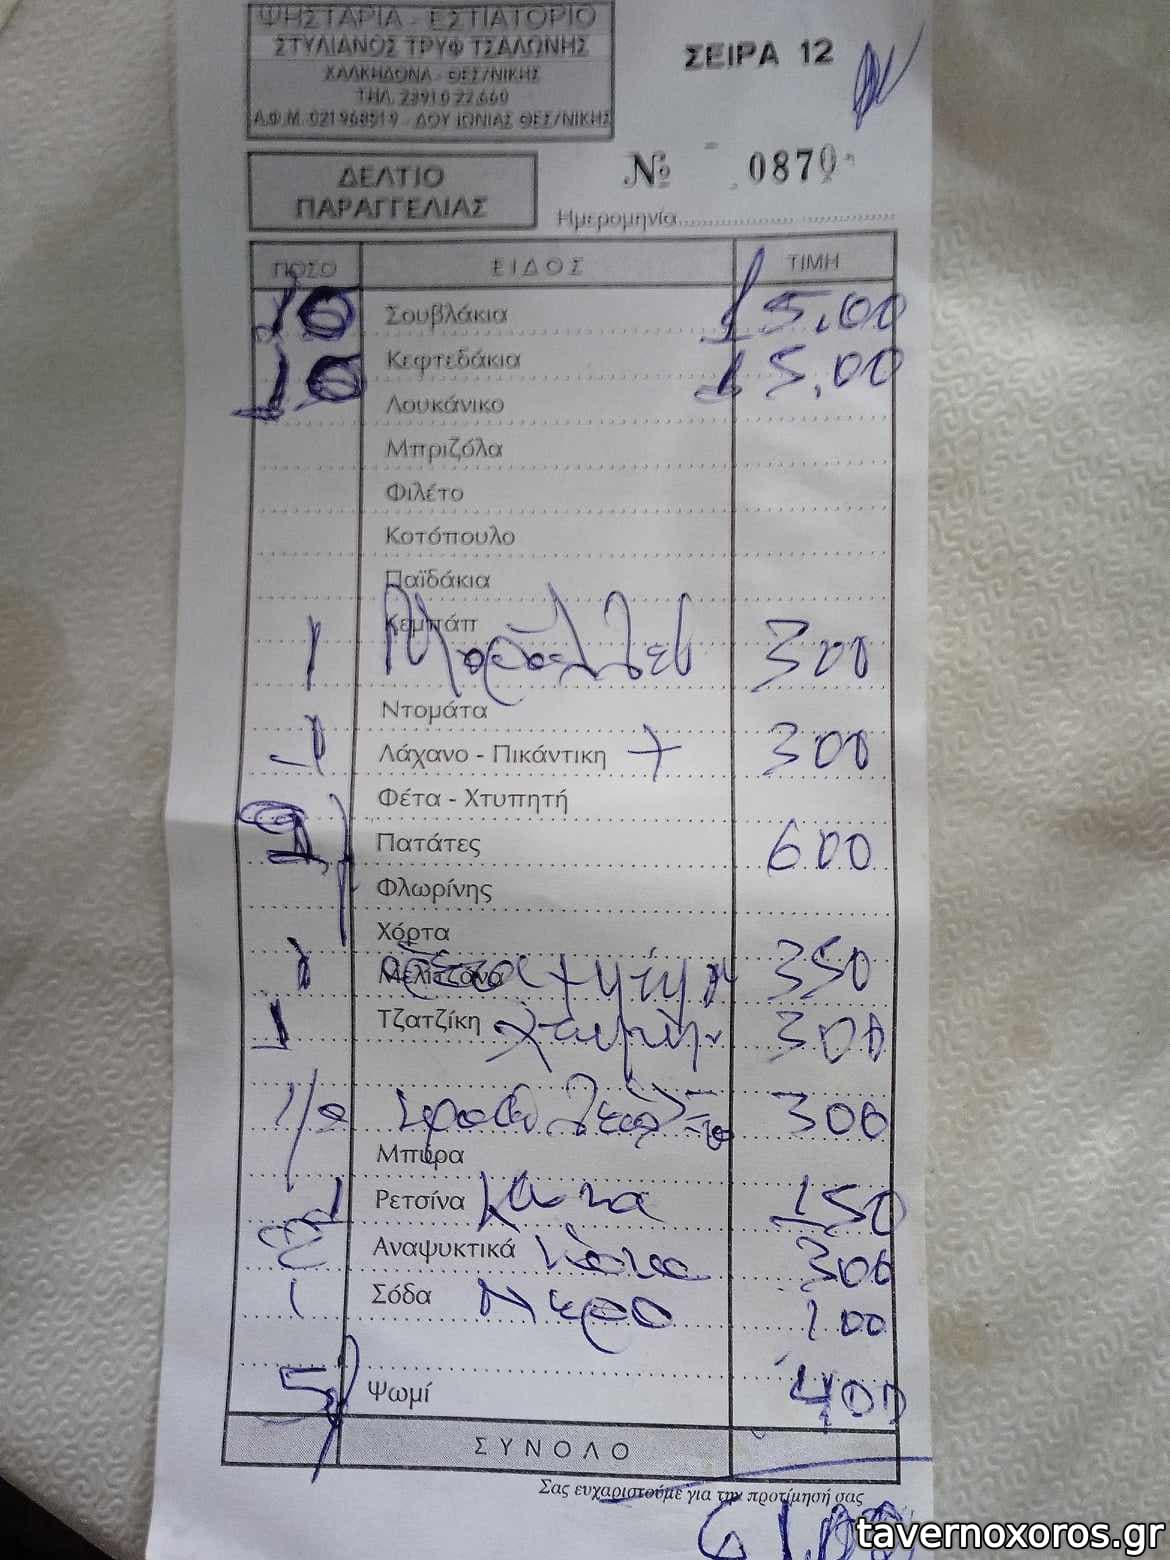 ΨΗΣΤΑΡΙΑ - ΕΣΤΙΑΤΟΡΙΟ
ΣΤΥΛΙΑΝΟΣ ΤΡΥΦ ΤΣΑΛΩΝΗΣ
ΧΑΛΚΗΔΟΝΑ - ΘΕΣ/ΝΙΚΗΣ
ΤΗΛ. 23910 22.660
Α.Φ.Μ. 021968519 - ΔΟΥ ΙΩΝΙΑΣ ΘΕΣ/ΝΙΚΗΣ
ΣΕΙΡΑ 12
ΔΕΛΤΙΟ
ΠΑΡΑΓΓΕΛΙΑΣ
№ 0870
Ημερομηνία
ΠΟΣΟ ΕΙΔΟΣ ΤΙΜΗ
10 Σουβλάκια 15,00
10 Κεφτεδάκια 15,00
Λουκάνικο
Μπριζόλα
Φιλέτο
Κοτόπουλο
Παϊδάκια
Κεμπάπ
1 300
Ντομάτα
1 Λάχανο - Πικάντικη + 300
Φέτα - Χτυπητή
2 Πατάτες 600
Φλωρίνης
Χόρτα
1 Μελιτζάνα 350
1 Τζατζίκη 300
300
Μπύρα
1 Ρετσίνα 150
2 Αναψυκτικά 300
1 Σόδα Νερο 100
5 Ψωμί 400
ΣΥΝΟΛΟ
Σας ευχαριστούμε για την προτίμησή σας
61,00
tavernoxoros.gr